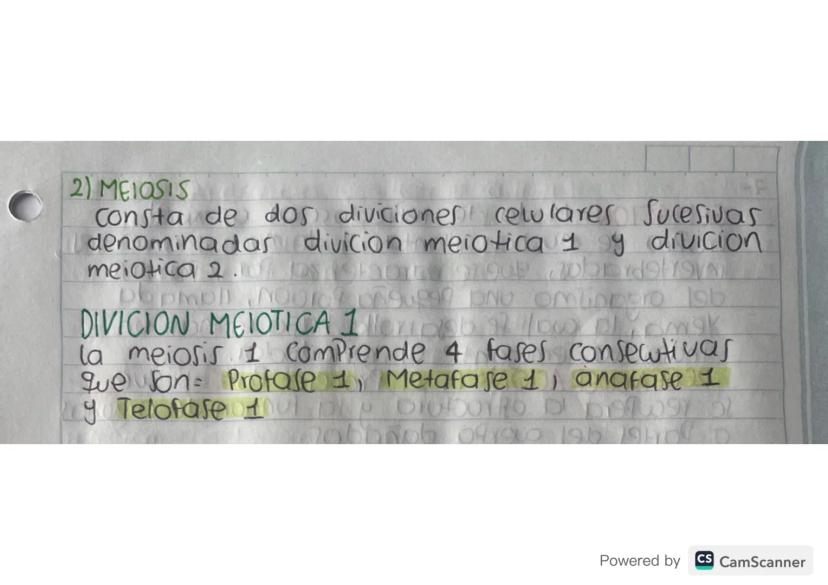 2) MEIOSIS
consta de dos diviciones celulares sucesivas
denominadas divicion meiotica 1 y divicion
meiotica 2.
DIVICION MEIOTICA 1
la meiosis 1 comprende 4 fases consecutivas
que son: Profase 1, Metafase 1, anafase 1
y Telofase 1
Powered by CS CamScanner